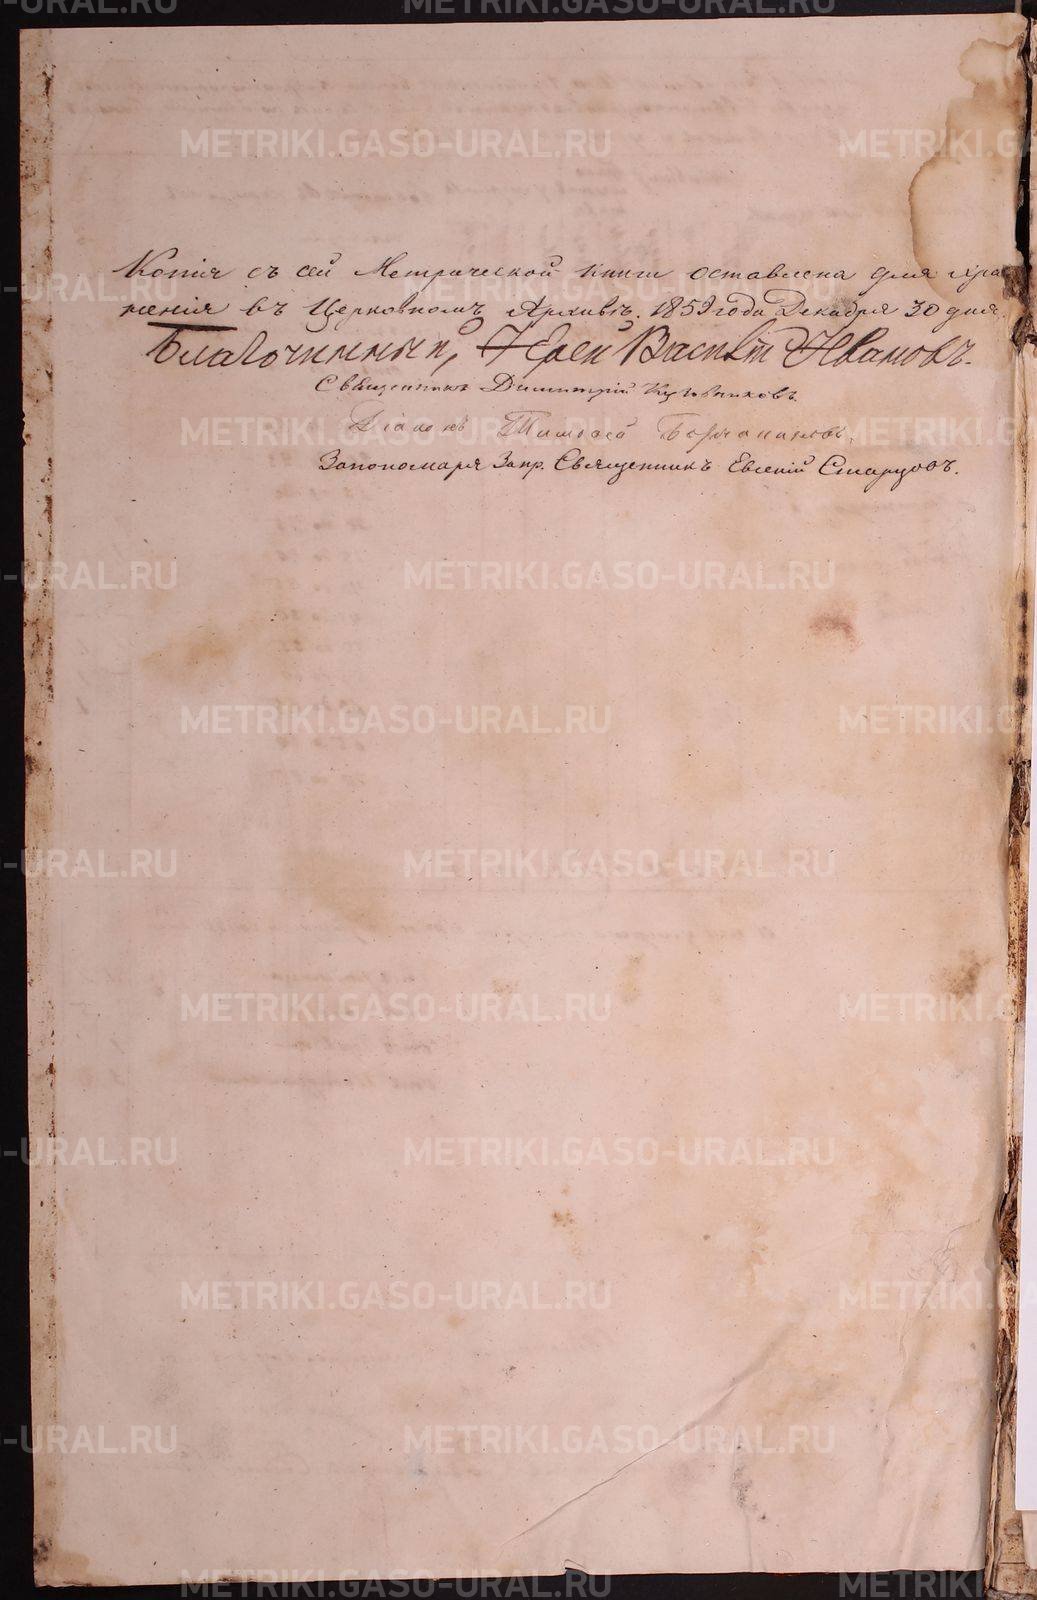 Копія съ сей Метрической книги оставлена для хра
ненія въ Церковномъ Архивѣ. 1859 года Декабря 30 дня.
Благочинный, Іерей Василій Ивановъ.
Священникъ Димитрій
Діаконъ Тимофей
Запономаря Запр. Священникъ Евгеній Старцовъ.
METRIKI.GASO-URAL.RU